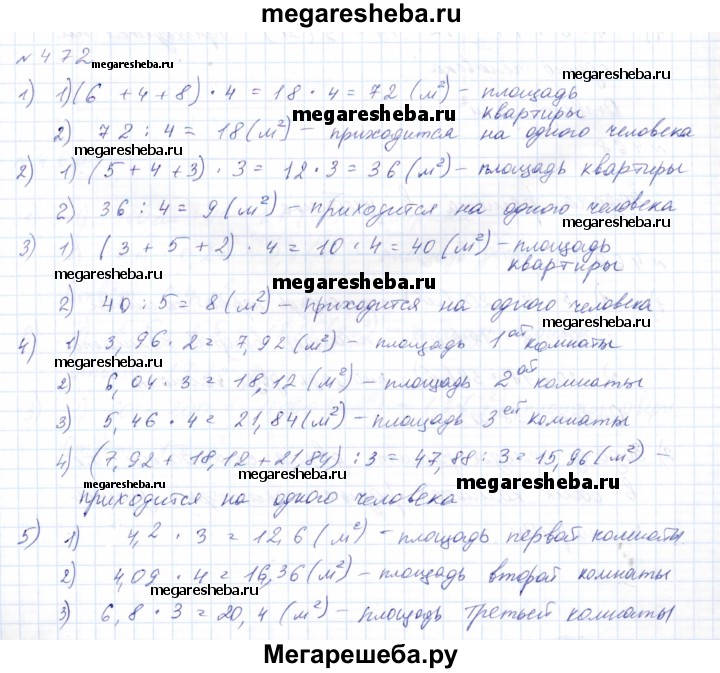 megaresheba.ru
№ 472
megaresheba.ru
1) 1) (6 + 4 + 8) · 4 = 18 · 4 = 72 (м²) – площадь
квартиры
megaresheba.ru
2) 72 : 4 = 18 (м²) – приходится на одного человека
megaresheba.ru
2) 1) (5 + 4 + 3) · 3 = 12 · 3 = 36 (м²) – площадь квартиры
megaresheba.ru
2) 36 : 4 = 9 (м²) – приходится на одного человека
megaresheba.ru
3) 1) (3 + 5 + 2) · 4 = 10 · 4 = 40 (м²) – площадь
квартиры
megaresheba.ru
megaresheba.ru
2) 40 : 5 = 8 (м²) – приходится на одного человека
megaresheba.ru
4) 1) 3,96 · 2 = 7,92 (м²) – площадь 1ой комнаты
megaresheba.ru
2) 6,04 · 3 = 18,12 (м²) – площадь 2ой комнаты
3) 5,46 · 4 = 21,84 (м²) – площадь 3ей комнаты
4) (7,92 + 18,12 + 21,84) : 3 = 47,88 : 3 = 15,96 (м²) –
megaresheba.ru
megaresheba.ru
приходится на одного человека
5) 1) 4,2 · 3 = 12,6 (м²) – площадь первой комнаты
megaresheba.ru
2) 4,09 · 4 = 16,36 (м²) – площадь второй комнаты
megaresheba.ru
3) 6,8 · 3 = 20,4 (м²) – площадь третьей комнаты
Мегарешеба.ру